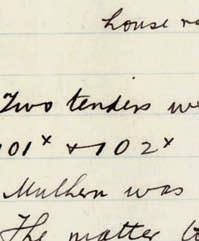 house
Two tenders
101x + 102x
Mulhern was
The matter